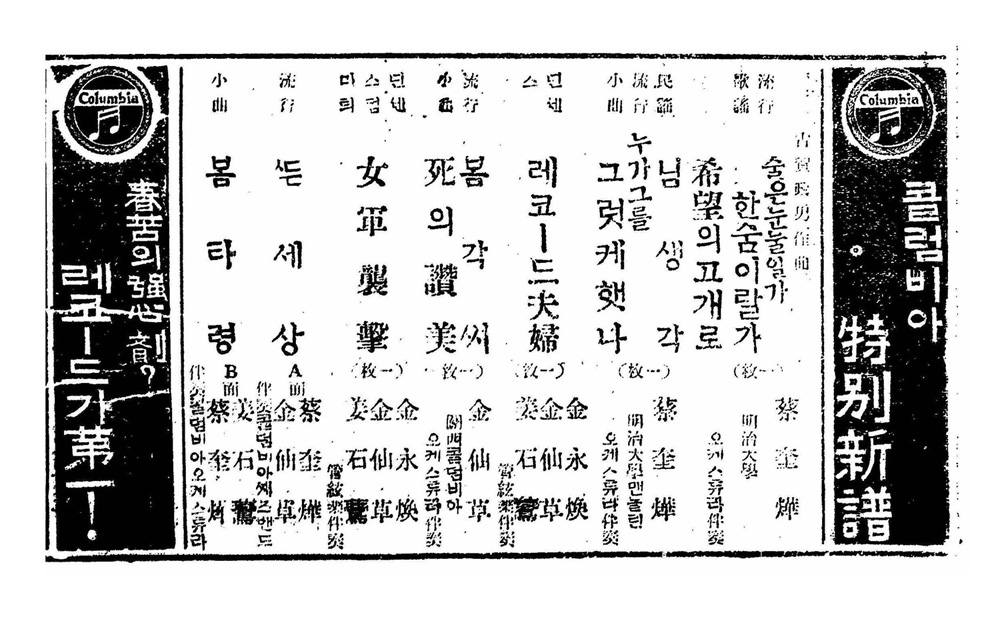 Columbia
콜럼비아
特別新譜
古賀政男作曲
流行
歌謠
술은눈물일가
한숨이랄가
希望의고개로
(一枚)
蔡奎燁
明治大學
오케스튜라伴奏
民謠
님생각
流行
小曲
누가그를
그럿케햇나
(一枚)
蔡奎燁
明治大學맨돌린
오케스튜라伴奏
레코ー드夫婦
(一枚)
金永煥
金仙草
姜石鷰
管絃樂伴奏
流行
小曲
봄각씨
死의讚美
(一枚)
金仙草
關西콜럼비아
오케스튜라伴奏
女軍襲擊
(一枚)
金永煥
金仙草
姜石鷰
管絃樂伴奏
流行
小曲
쓴세상
A面
蔡奎燁
金仙草
伴奏콜럼비아째즈밴드
봄타령
B面
姜石鷰
蔡奎燁
伴奏콜럼비아오케스튜라
Columbia
春苦의强心劑?
레코ー드가第一!